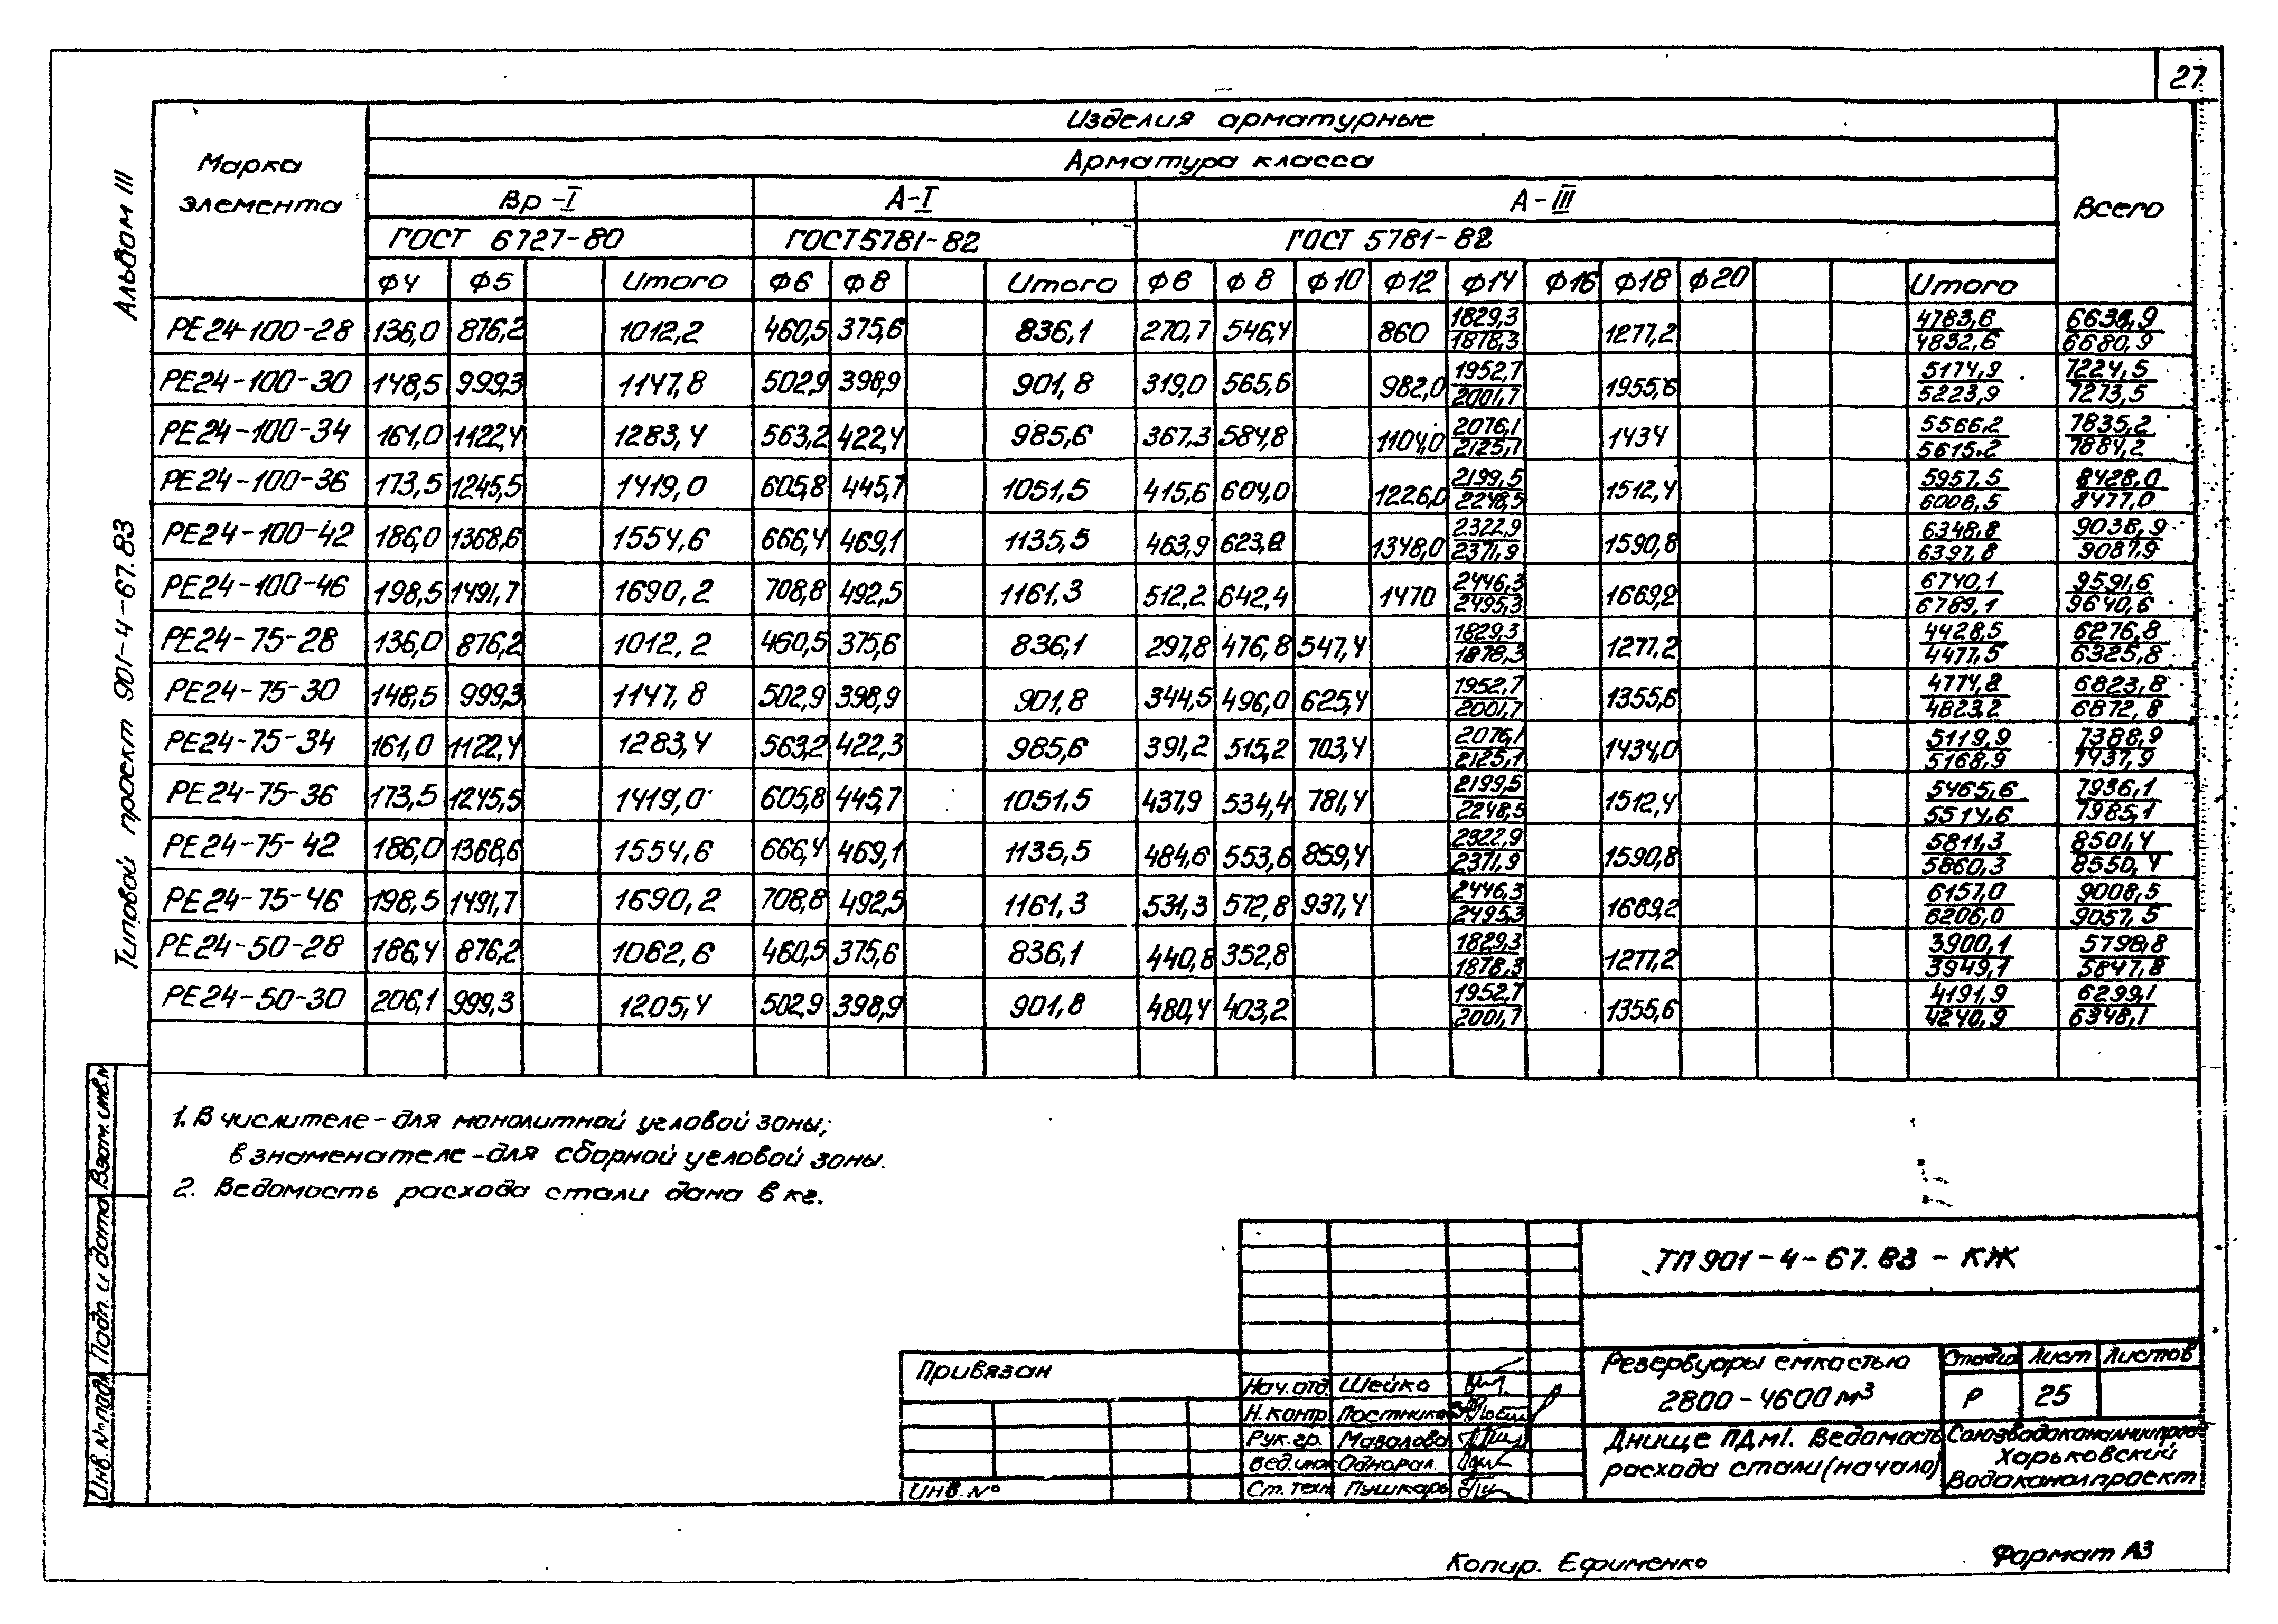 27
Альбом III
Типовой проект 901-4-67.83
Марка элемента
Изделия арматурные
Всего
Арматура класса
Вр-I А-I А-III
ГОСТ 6727-80 ГОСТ 5781-82 ГОСТ 5781-82
Ф4 Ф5 Итого Ф6 Ф8 Итого Ф6 Ф8 Ф10 Ф12 Ф14 Ф16 Ф18 Ф20 Итого
РЕ24-100-28 136,0 876,2 1012,2 460,5 375,6 836,1 270,7 546,4 860 1829,3/1878,3 1277,2 4783,6/4832,6 6680,9
РЕ24-100-30 148,5 999,3 1147,8 502,9 398,9 901,8 319,0 565,6 982,0 1952,7/2001,7 1955,6 5174,9/5223,9 7224,5/7273,5
РЕ24-100-34 161,0 1122,4 1283,4 563,2 422,4 985,6 367.3 584,8 1104,0 2076,1/2125,1 1434 5566,2/5615.2 7835,2/7884,2
РЕ24-100-36 173,5 1245,5 1419,0 605,8 445,7 1051,5 415,6 604,0 1226,0 2199,5/2248,5 1512,4 5957,5/6008,5 8428,0/8477,0
РЕ24-100-42 186,0 1368,6 1554,6 666,4 469,1 1135,5 463,9 1348,0 2322,9/2371,9 1590,8 6348,8/6397,8 9038,9/9087,9
РЕ24-100-46 198,5 1491,7 1690,2 708,8 492,5 1161,3 512,2 642,4 1470 2446,3/2495,3 1669,2 6740,1/6789,1 9591,6/9640,6
РЕ24-75-28 136,0 876,2 1012,2 460,5 375,6 836,1 297,8 476,8 547,4 1829,3/1878,3 1277,2 4428,5/4477,5 6276,8/6325,8
РЕ24-75-30 148,5 999,3 1147,8 502,9 398,9 901,8 344,5 496,0 625,4 1952,7/2001,7 1355,6 4774,2/4823,2 6823,8/6872,8
РЕ24-75-34 161,0 1122,4 1283,4 563,2 422,3 985,6 391,2 515,2 703,4 2076,1/2125,1 1434,0 5119,9/5168,9 7388,9/7437,9
РЕ24-75-36 173,5 1245,5 1419,0 605,8 445,7 1051,5 437,9 534,4 781,4 2199,5/2248,5 1512,4 5465,6/5514,6 7936,1/7985,1
РЕ24-75-42 186,0 1368,6 1554,6 666,4 469,1 1135,5 484,6 553,6 859,4 2322,9/2371,9 1590,8 5811,3/5860,3 8501,4/8550,4
РЕ24-75-46 198,5 1491,7 1690,2 708,8 492,5 1161,3 531,3 572,8 937,4 2446,3/2495,3 1669,2 6157,0/6206,0 9008,5/9057,5
РЕ24-50-28 186,4 876,2 1062,6 460,5 375,6 836,1 440,8 352,8 1829,3/1878,3 1277,2 3900,1/3949,1 5798,8/5847,8
РЕ24-50-30 206,1 999,3 1205,4 502,9 398,9 901,8 480,4 403,2 1952,7/2001,7 1355,6 4191,9/4240,9 6299,1/6348,1
1. В числителе-для монолитной угловой зоны;
в знаменателе-для сборной угловой зоны.
2. Ведомость расхода стали дана в кг.
Инв.№ подл. Подп. и дата Взам. инв. №
ТП 901-4-67.83-КЖ
Привязан
Инв. №
Нач. отд. Шейко
Н. контр. Постников
Рук. гр. Мазалова
Вед. инж Однорал.
Ст. техн. Пушкарь
Резервуары емкостью
2800-4600 м³
Стадия Лист Листов
Р 25
Днище ПДм1. Ведомость
расхода стали (начало)
Союзводоканалниипроект
Харьковский
Водоканалпроект
Копир. Ефименко
Формат А3